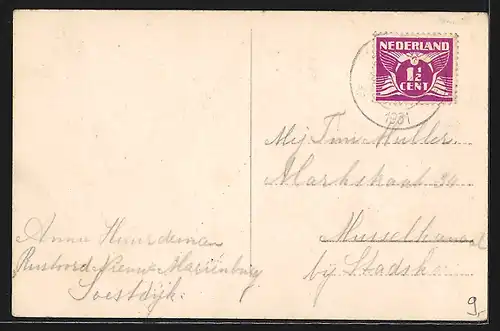 NEDERLAND
1½
CENT
1931
Mej Tini Muller
Markstraat 34
Musselkanaal
bij Stadska
Anna Huurdeman
Rustoord Nieuw Mariënburg
Soestdijk.
9,-